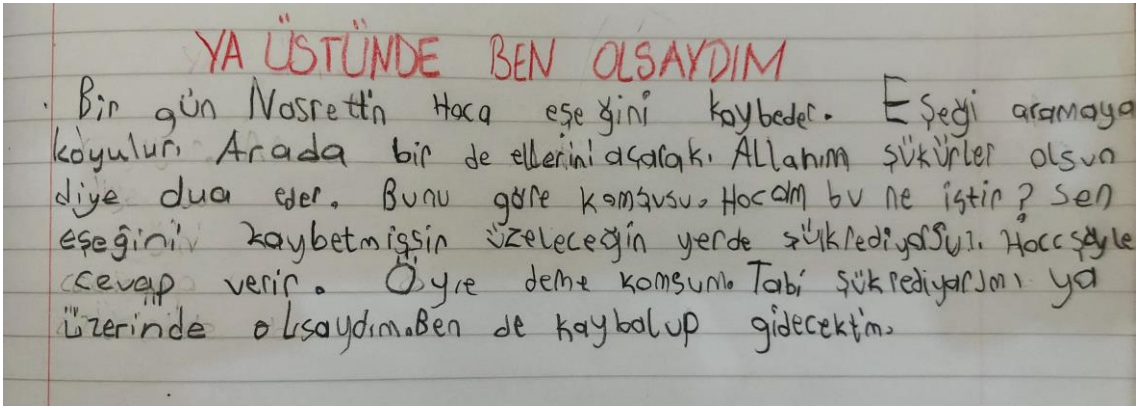 YA ÜSTÜNDE BEN OLSAYDIM
Bir gün Nasrettin Hoca eşeğini kaybeder. Eşeği aramaya
koyulur. Arada bir de ellerini açarak. Allahım şükürler olsun
diye dua eder. Bunu göre komşusu. Hocam bu ne iştir? Sen
eşeğini kaybetmişsin üzeleceğin yerde şükrediyorsun. Hoca şöyle
cevap verir. Öyle deme komşum. Tabi şükrediyorım ya
üzerinde olsaydım. Ben de kaybolup gidecektim.